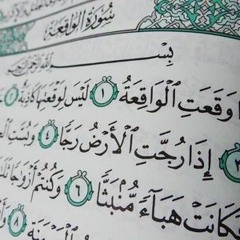 سُورَةُ الوَاقِعَةِ
بِسْ
ا وَقَعَتِ ٱلْوَاقِعَةُ ١ لَيْسَ لِوَقْعَتِهَا كَاذِبَةٌ ٢
٣ إِذَا رُجَّتِ ٱلْأَرْضُ رَجًّا ٤ وَبُسَّتِ
فَكَانَتْ هَبَآءً مُّنۢبَثًّا ٦ وَكُنتُمْ أَزْوَٰجًا
٨